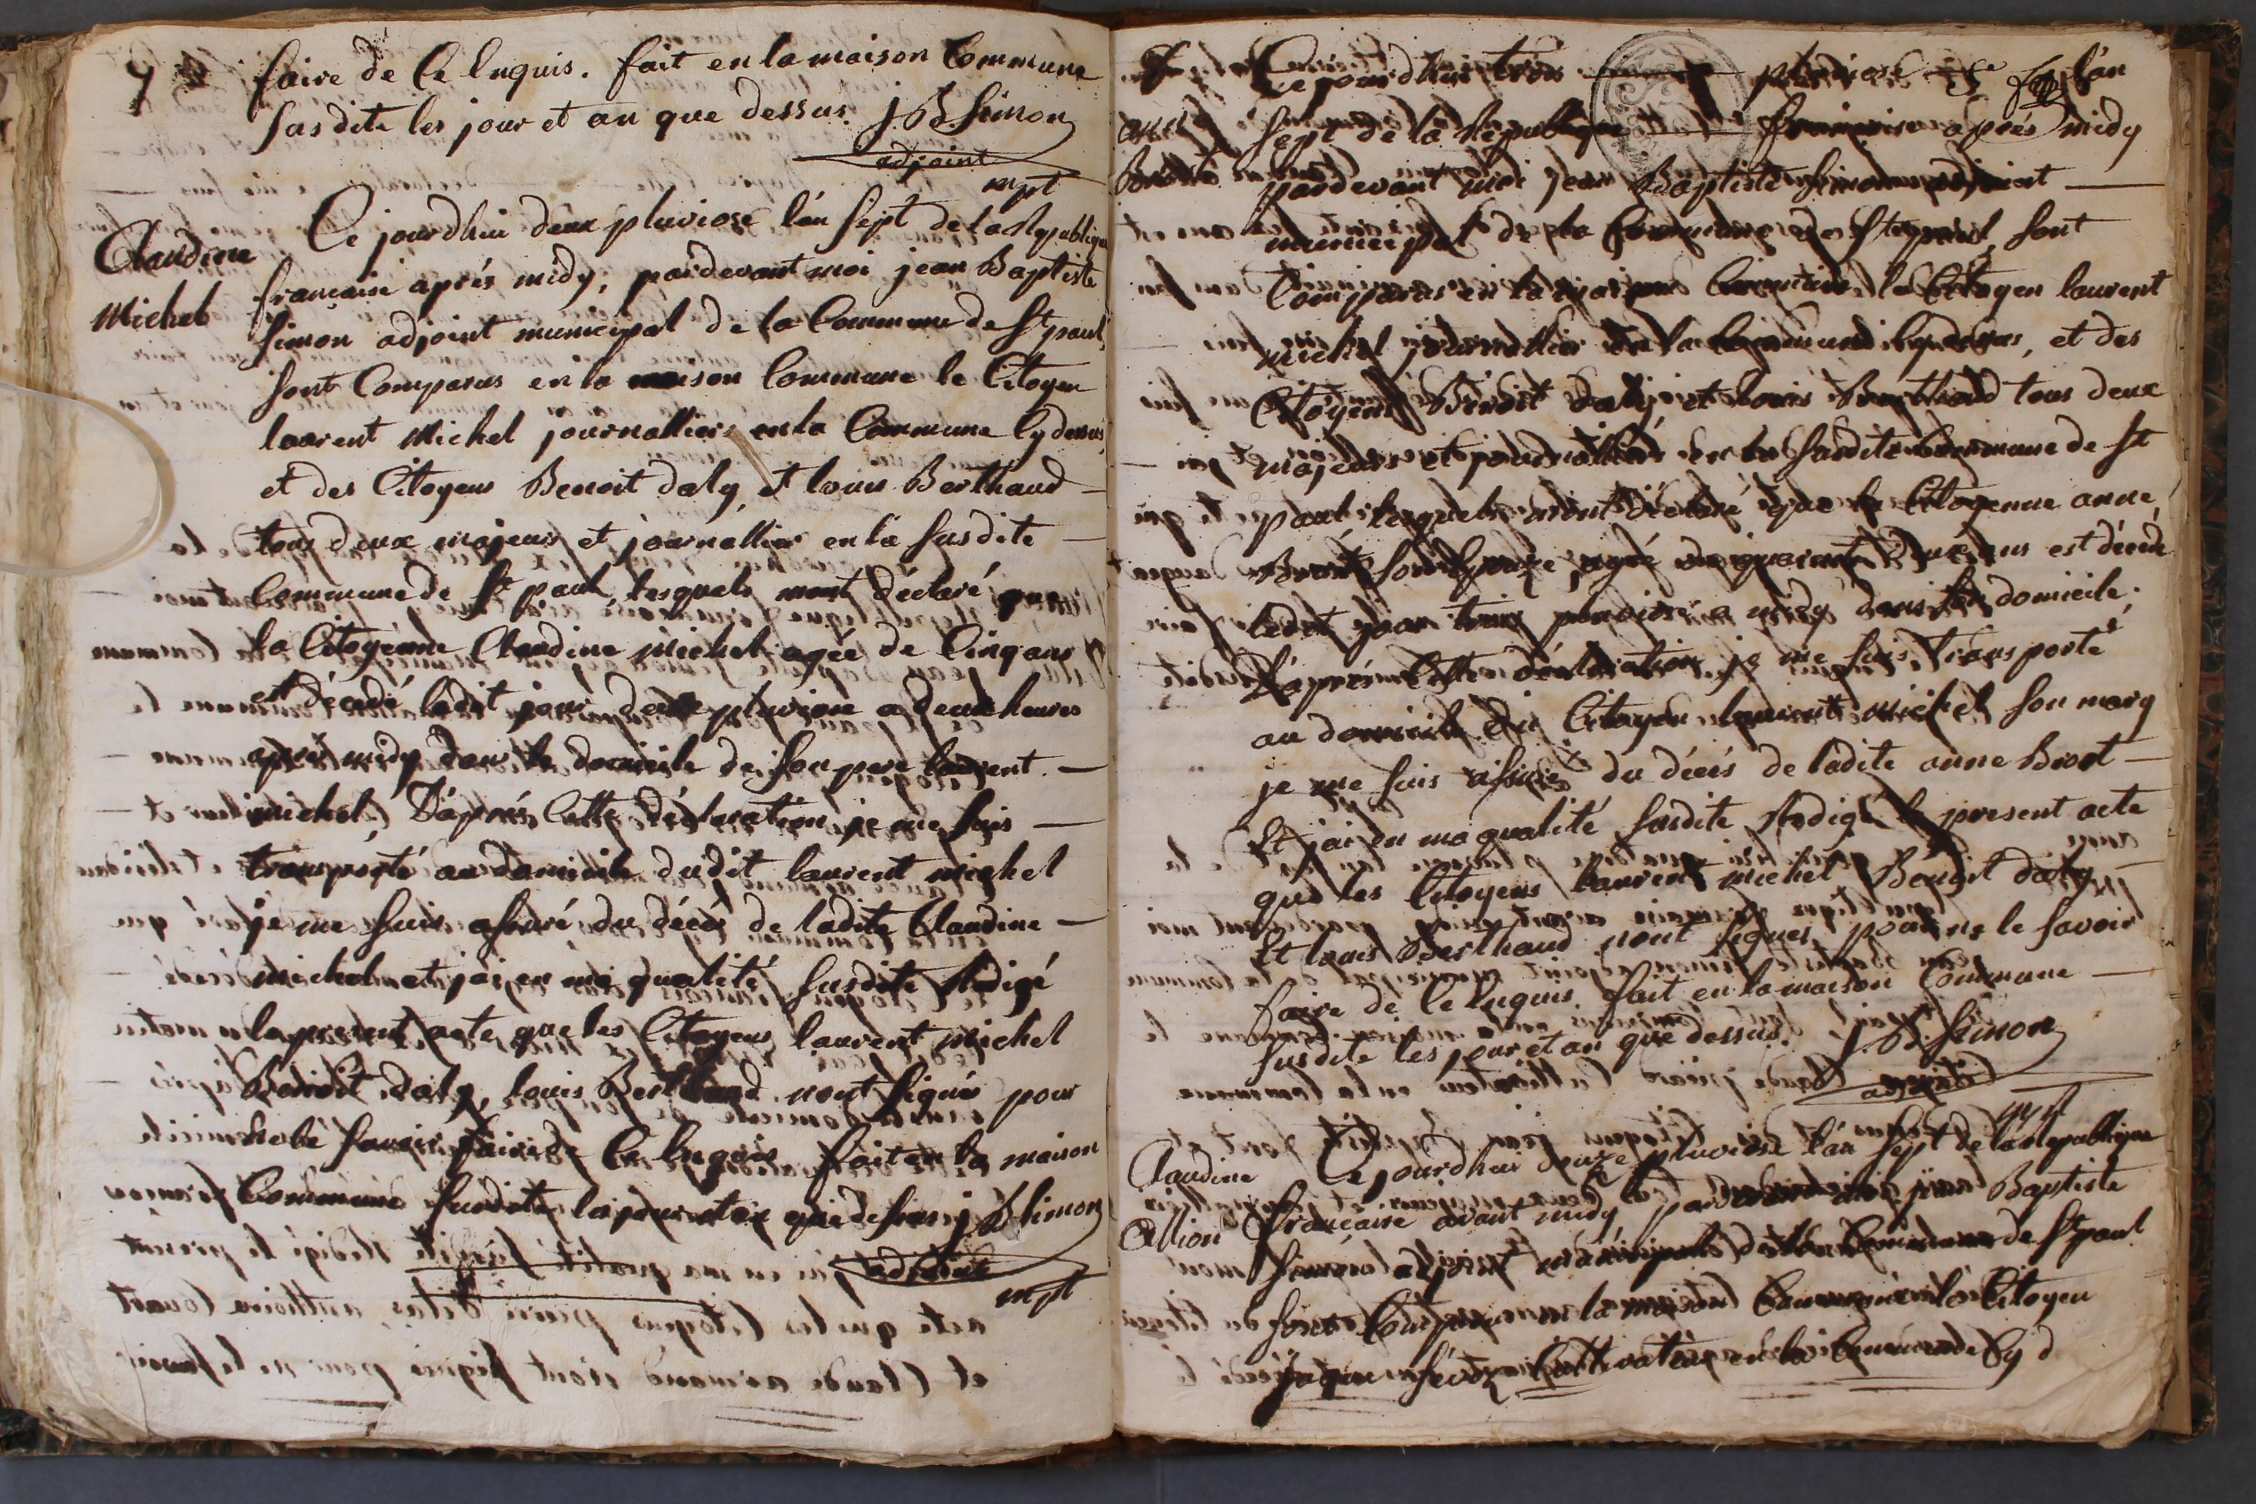 faire de ce Enquis. fait en la maison Commune
Susdite les jour et an que dessus. J. B. Simon
adjoint
mpt
Claudine
Michel
Ce jourdhui deux pluviose l'an Sept de la Republique
francaise aprés midy, pardevant moi jean Baptiste
Simon adjoint municipal de la Commune de St paul,
Sont Comparus en la maison Commune le Citoyen
laurent Michel journallier en la Commune Cydessus,
et des Citoyens Benoit daly, et louis Berthaud
tous deux majeurs et journallier en la Susdite
Commune de St paul, lesquels mont déclaré que
la Citoyenne Claudine michel agée de Cinq ans
est décedé ledit jour deux pluviose a deux heures
aprés midy dans le domicile de Son pere laurent
michel, D'aprés Cette déclaration je me suis
transporté au domicile dudit laurent michel
je me suis assuré du décés de ladite Claudine
michel et jai en ma qualité Susdite Redigé
le present acte que les Citoyens laurent michel
Benoit daly, louis Berthaud nont Signés pour
ne le Savoir faire de Ce Enquis fait en la maison
Commune Susdite les jour et an que dessus J. B Simon
adjoint
mpt
Ce jourdhui trois pluviose l'an
anne
Brort
Sept de la Republique francaise aprés midy
pardevant moi jean Baptiste Simon adjoint
municipal de la Commune de St paul, Sont
Comparus en la maison Commune le Citoyen laurent
michel journallier en la Commune Cydessus, et des
Citoyens Benoit daly, et louis Berthaud tous deux
majeurs et journallier en la Susdite Commune de St
paul, lesquels mont déclaré que la Citoyenne anne
Brort Son Epouze, agée de quarante deux ans est décédé
ledit jour trois pluviose a midy dans Son domicile.
D'aprés Cette déclaration je me suis transporté
au domicile du Citoyen laurent michel Son mary
je me suis assuré du décés de ladite anne Brort
Et jai en ma qualité Susdite Redigé le present acte
que les Citoyens laurent michel Benoit daly
Et louis Berthaud nont Signés pour ne le Savoir
faire de Ce Enquis. fait en la maison Commune
Susdite les jour et an que dessus. J. B. Simon
adjoint
mpt
Claudine
Allion
Ce jourdhui douze pluviose l'an Sept de la Republique
francaise avant midy, pardevant moi jean Baptiste
Simon adjoint municipal de la Commune de St paul
Sont Comparus en la maison Commune le Citoyen
jaque Cultivateur en la Commune de Cy d